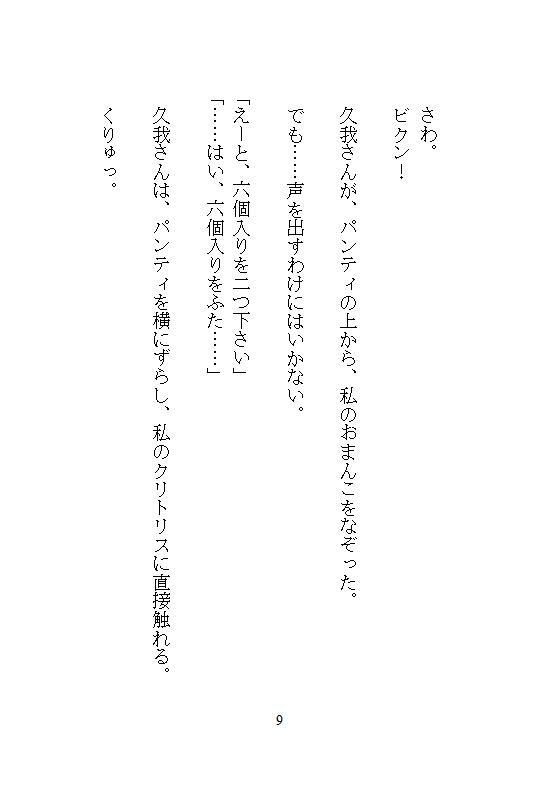 さわ。
ビクン！
久我さんが、パンティの上から、私のおまんこをなぞった。
でも……声を出すわけにはいかない。
「えーと、六個入りを二つ下さい」
「……はい、六個入りをふた……」
久我さんは、パンティを横にずらし、私のクリトリスに直接触れる。
くりゅっ。
9